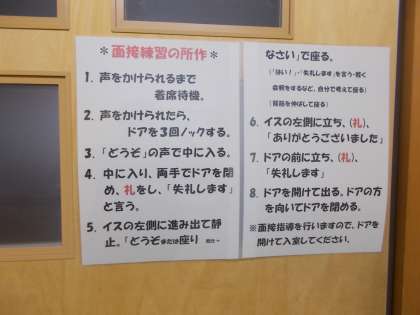 ＊面接練習の所作＊
1. 声をかけられるまで
着席待機。
2. 声をかけられたら、
ドアを３回ノックする。
3. 「どうぞ」の声で中に入る。
4. 中に入り、両手でドアを閉
め、礼をし、「失礼します」
と言う。
5. イスの左側に進み出て静
止。「どうぞまたは座り
なさい」で座る。
（「はい！」・「失礼します」を言う・軽く
会釈をするなど、自分で考えて座る）
（背筋を伸ばして座る）
6. イスの左側に立ち、(礼)、
「ありがとうございました」
7. ドアの前に立ち、(礼)、
「失礼します」
8. ドアを開けて出る。ドアの方
を向いてドアを閉める。
※面接指導を行いますので、ドアを
開けて入室してください。